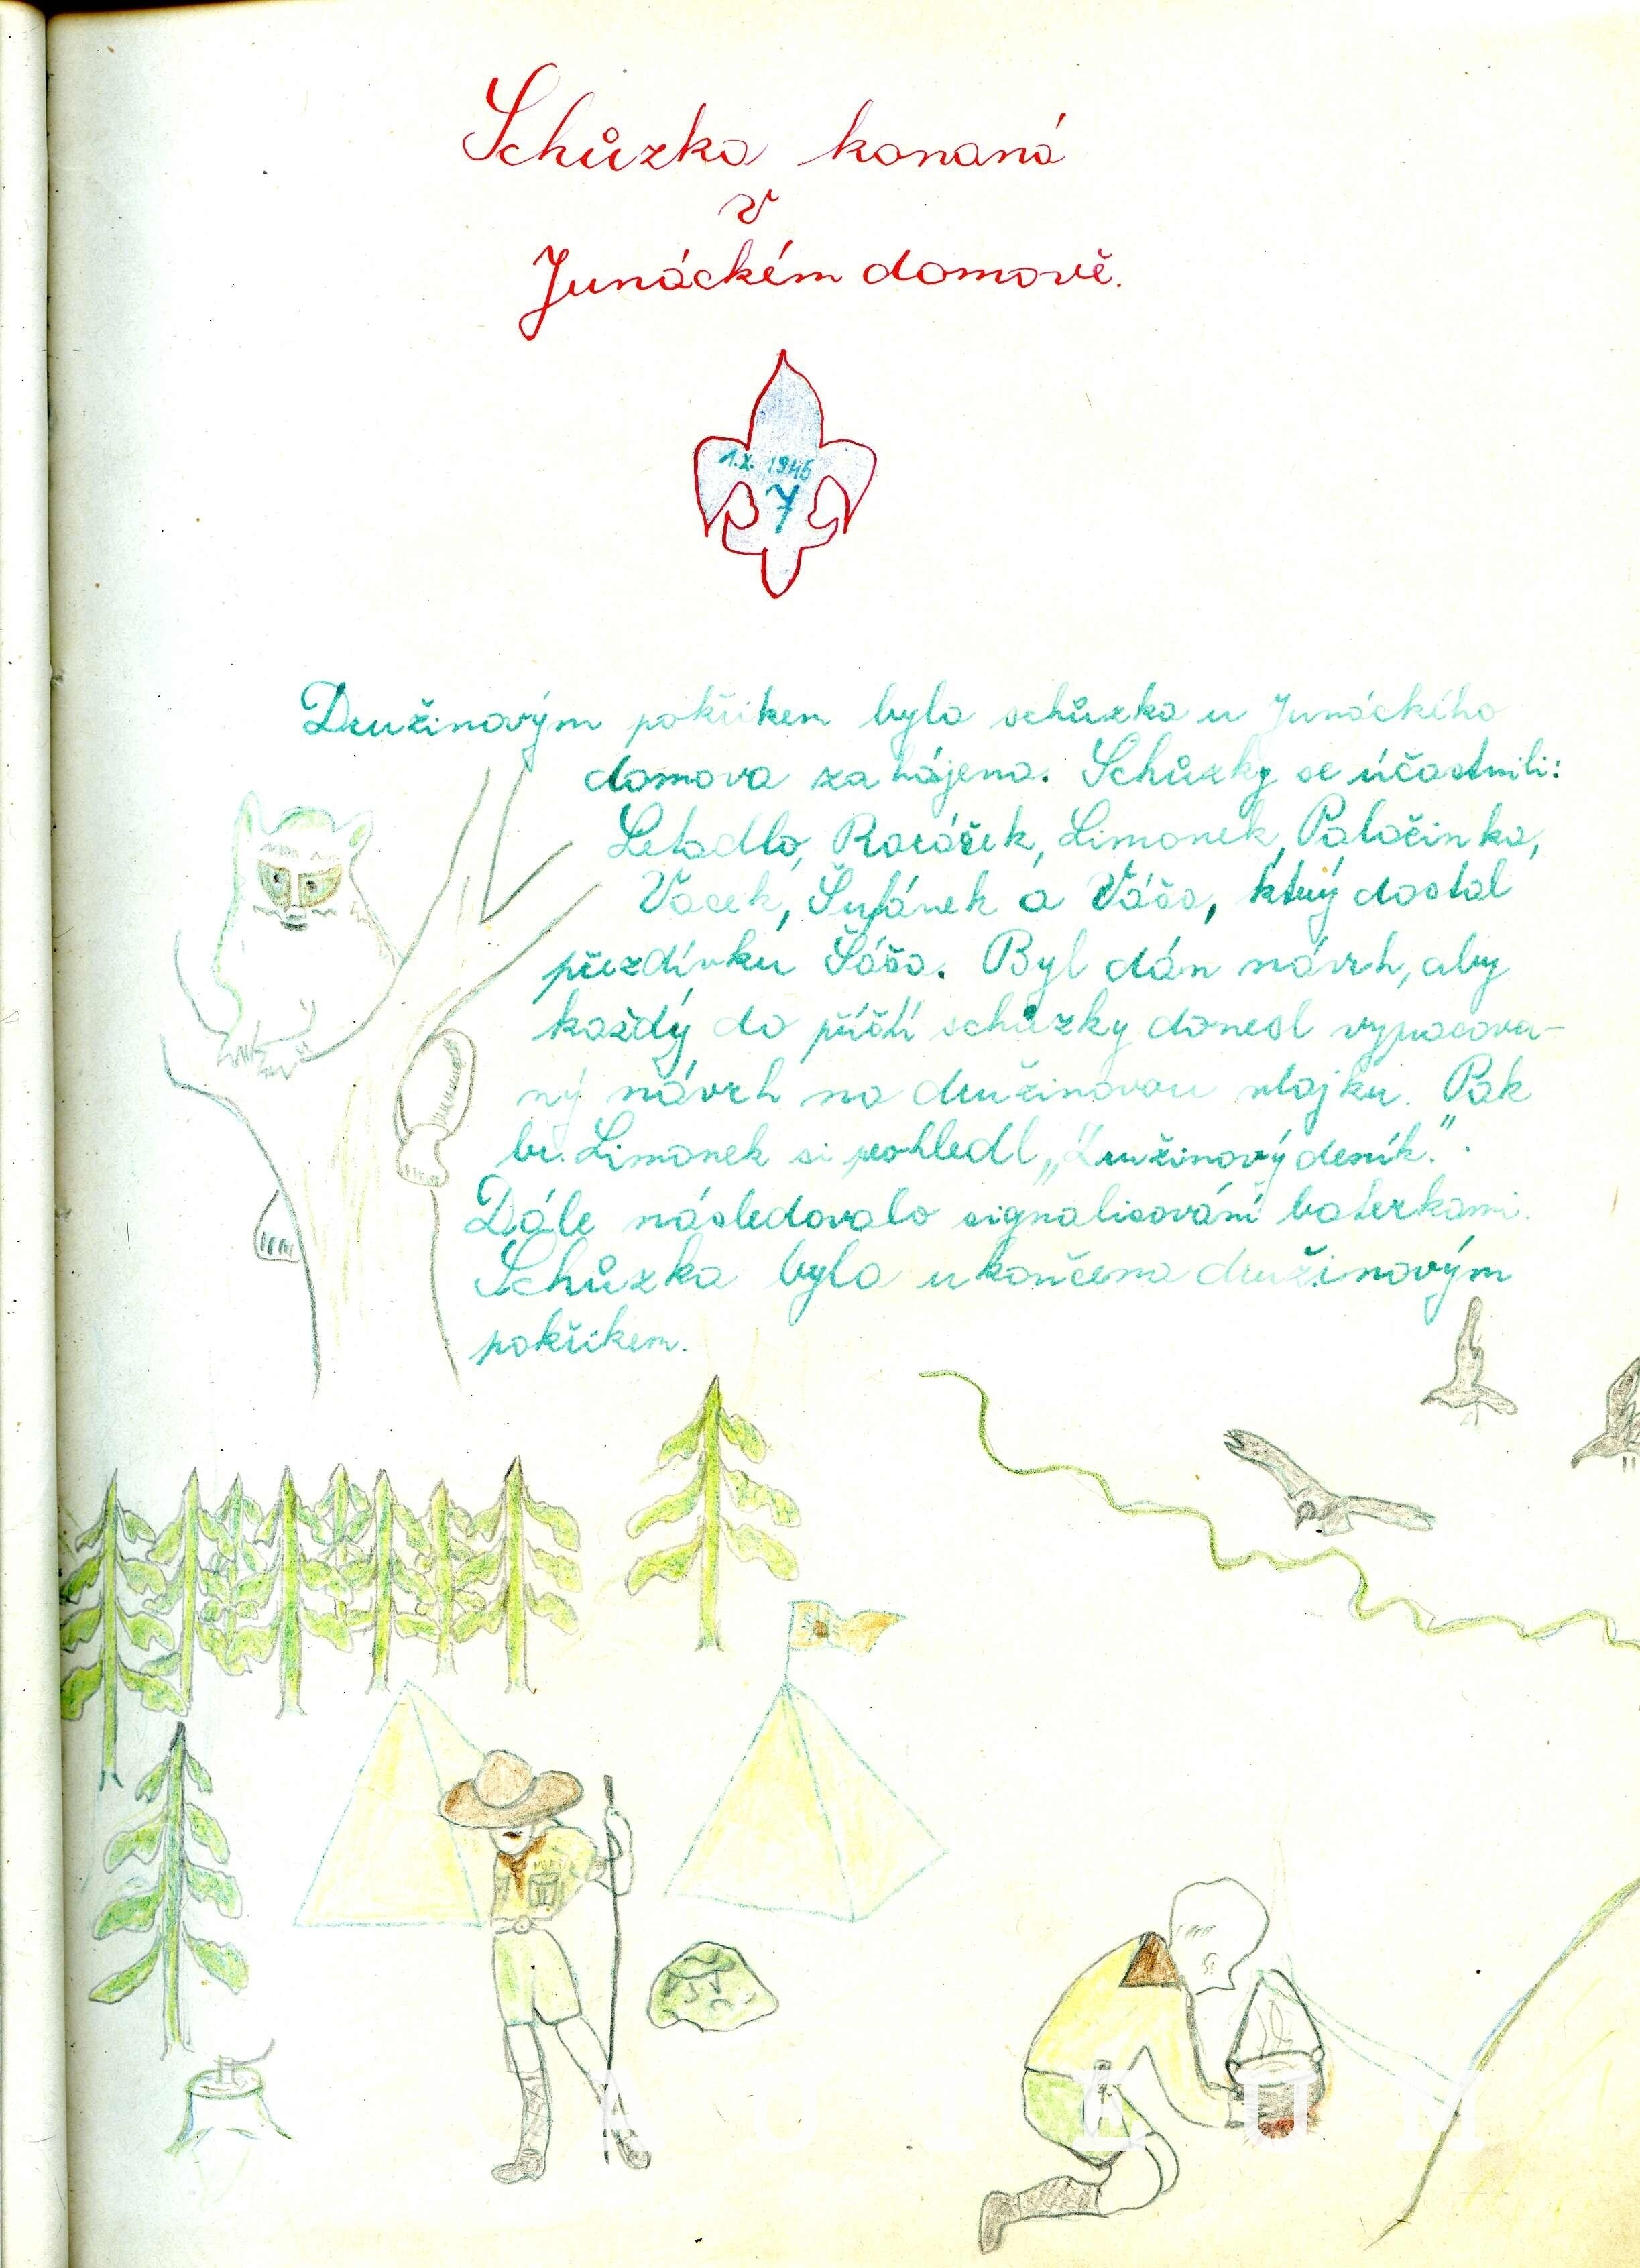 Schůzka konaná
v
Junáckém domově.
1.X. 1945
7
Družinovým pokřikem byla schůzka u Junáckého
domova zahájena. Schůzky se účastnili:
Letadlo, Rarášek, Limonek, Palačinka,
Vacek, Šufánek a Váša, ktrý dostal
přezdívku Šáša. Byl dán návrh, aby
každý do příští schůzky donesl vypracova-
ný návrh na družinovou vlajku. Pak
br. Limonek si prohledl „Družinový deník."
Dále následovalo signalisování baterkami.
Schůzka byla ukončena družinovým
pokřikem.